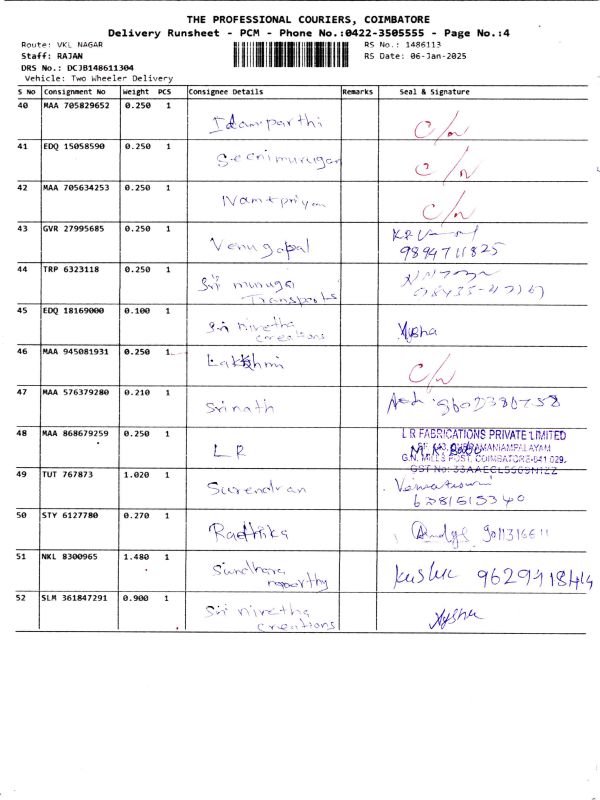 THE PROFESSIONAL COURIERS, COIMBATORE
Delivery Runsheet - PCM - Phone No.:0422-3505555 - Page No.:4
Route: VKL NAGAR RS No.: 1486113
Staff: RAJAN RS Date: 06-Jan-2025
DRS No.: DCJB148611304
Vehicle: Two Wheeler Delivery
S No Consignment No Weight PCS Consignee Details Remarks Seal & Signature
40 MAA 705829652 0.250 1
Idamparthi C/n
41 EDQ 15058590 0.250 1
Seenimurugan C/n
42 MAA 705634253 0.250 1
C/n
43 GVR 27995685 0.250 1
Venugopal 9894711825
44 TRP 6323118 0.250 1
Sri muruga
Transports
45 EDQ 18169000 0.100 1
Sri nivetha
creations Aysha
46 MAA 945081931 0.250 1
Lakshmi C/n
47 MAA 576379280 0.210 1
Srinath
48 MAA 868679259 0.250 1
LR L R FABRICATIONS PRIVATE LIMITED
G.N. MILLS POST, COIMBATORE-641 029.
49 TUT 767873 1.020 1
Surendran
6381515340
50 STY 6127780 0.270 1
Radhika
51 NKL 8300965 1.480 1
Sundhara
moorthy
52 SLM 361847291 0.900 1
Sri nivetha
creations Aysha